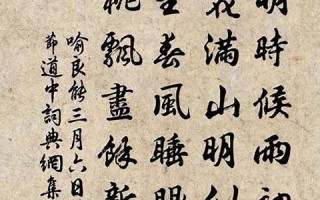 明時候雨初
花滿山明似
里春風睡眼
桃飄盡餘新
喻良能三月六日
節道中詞典網集